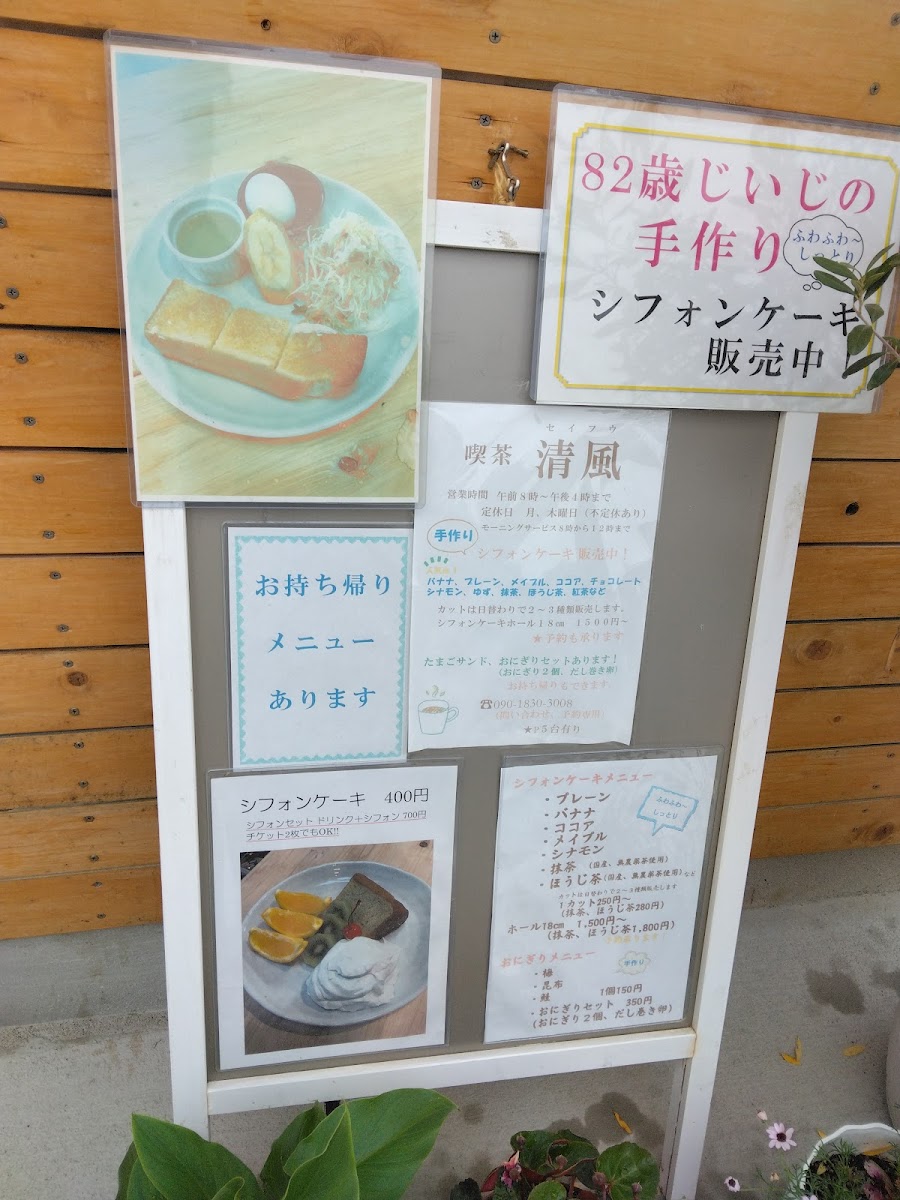 82歳じいじの
手作り
ふわふわ~
しっとり
シフォンケーキ
販売中!
セイフウ
喫茶 清風
営業時間 午前8時~午後4時まで
定休日 月、木曜日(不定休あり)
モーニングサービス8時から12時まで
手作り
シフォンケーキ販売中!
バナナ、プレーン、メイプル、ココア、チョコレート
シナモン、ゆず、抹茶、ほうじ茶、紅茶など
カットは日替わりで2~3種類販売します。
シフォンケーキホール18cm 1500円~
★予約も承ります
たまごサンド、おにぎりセットあります!
(おにぎり2個、だし巻き卵)
お持ち帰りもできます。
☎090-1830-3008
(問い合わせ、予約専用)
★P5台有り
お持ち帰り
メニュー
あります
シフォンケーキ 400円
シフォンセット ドリンク+シフォン 700円
チケット2枚でもOK!!
シフォンケーキメニュー
・プレーン
・バナナ
・ココア
・メイプル
・シナモン
・抹茶 (国産、無農薬茶使用)
・ほうじ茶(国産、無農薬茶使用)など
ふわふわ~
しっとり
カットは日替わりで2~3種販売します
1カット250円~
(抹茶、ほうじ茶280円)
ホール18cm 1,500円~
(抹茶、ほうじ茶1,800円)
予約承ります!
おにぎりメニュー
手作り
・梅
・昆布
・鮭
1個150円
・おにぎりセット 350円
(おにぎり2個、だし巻き卵)